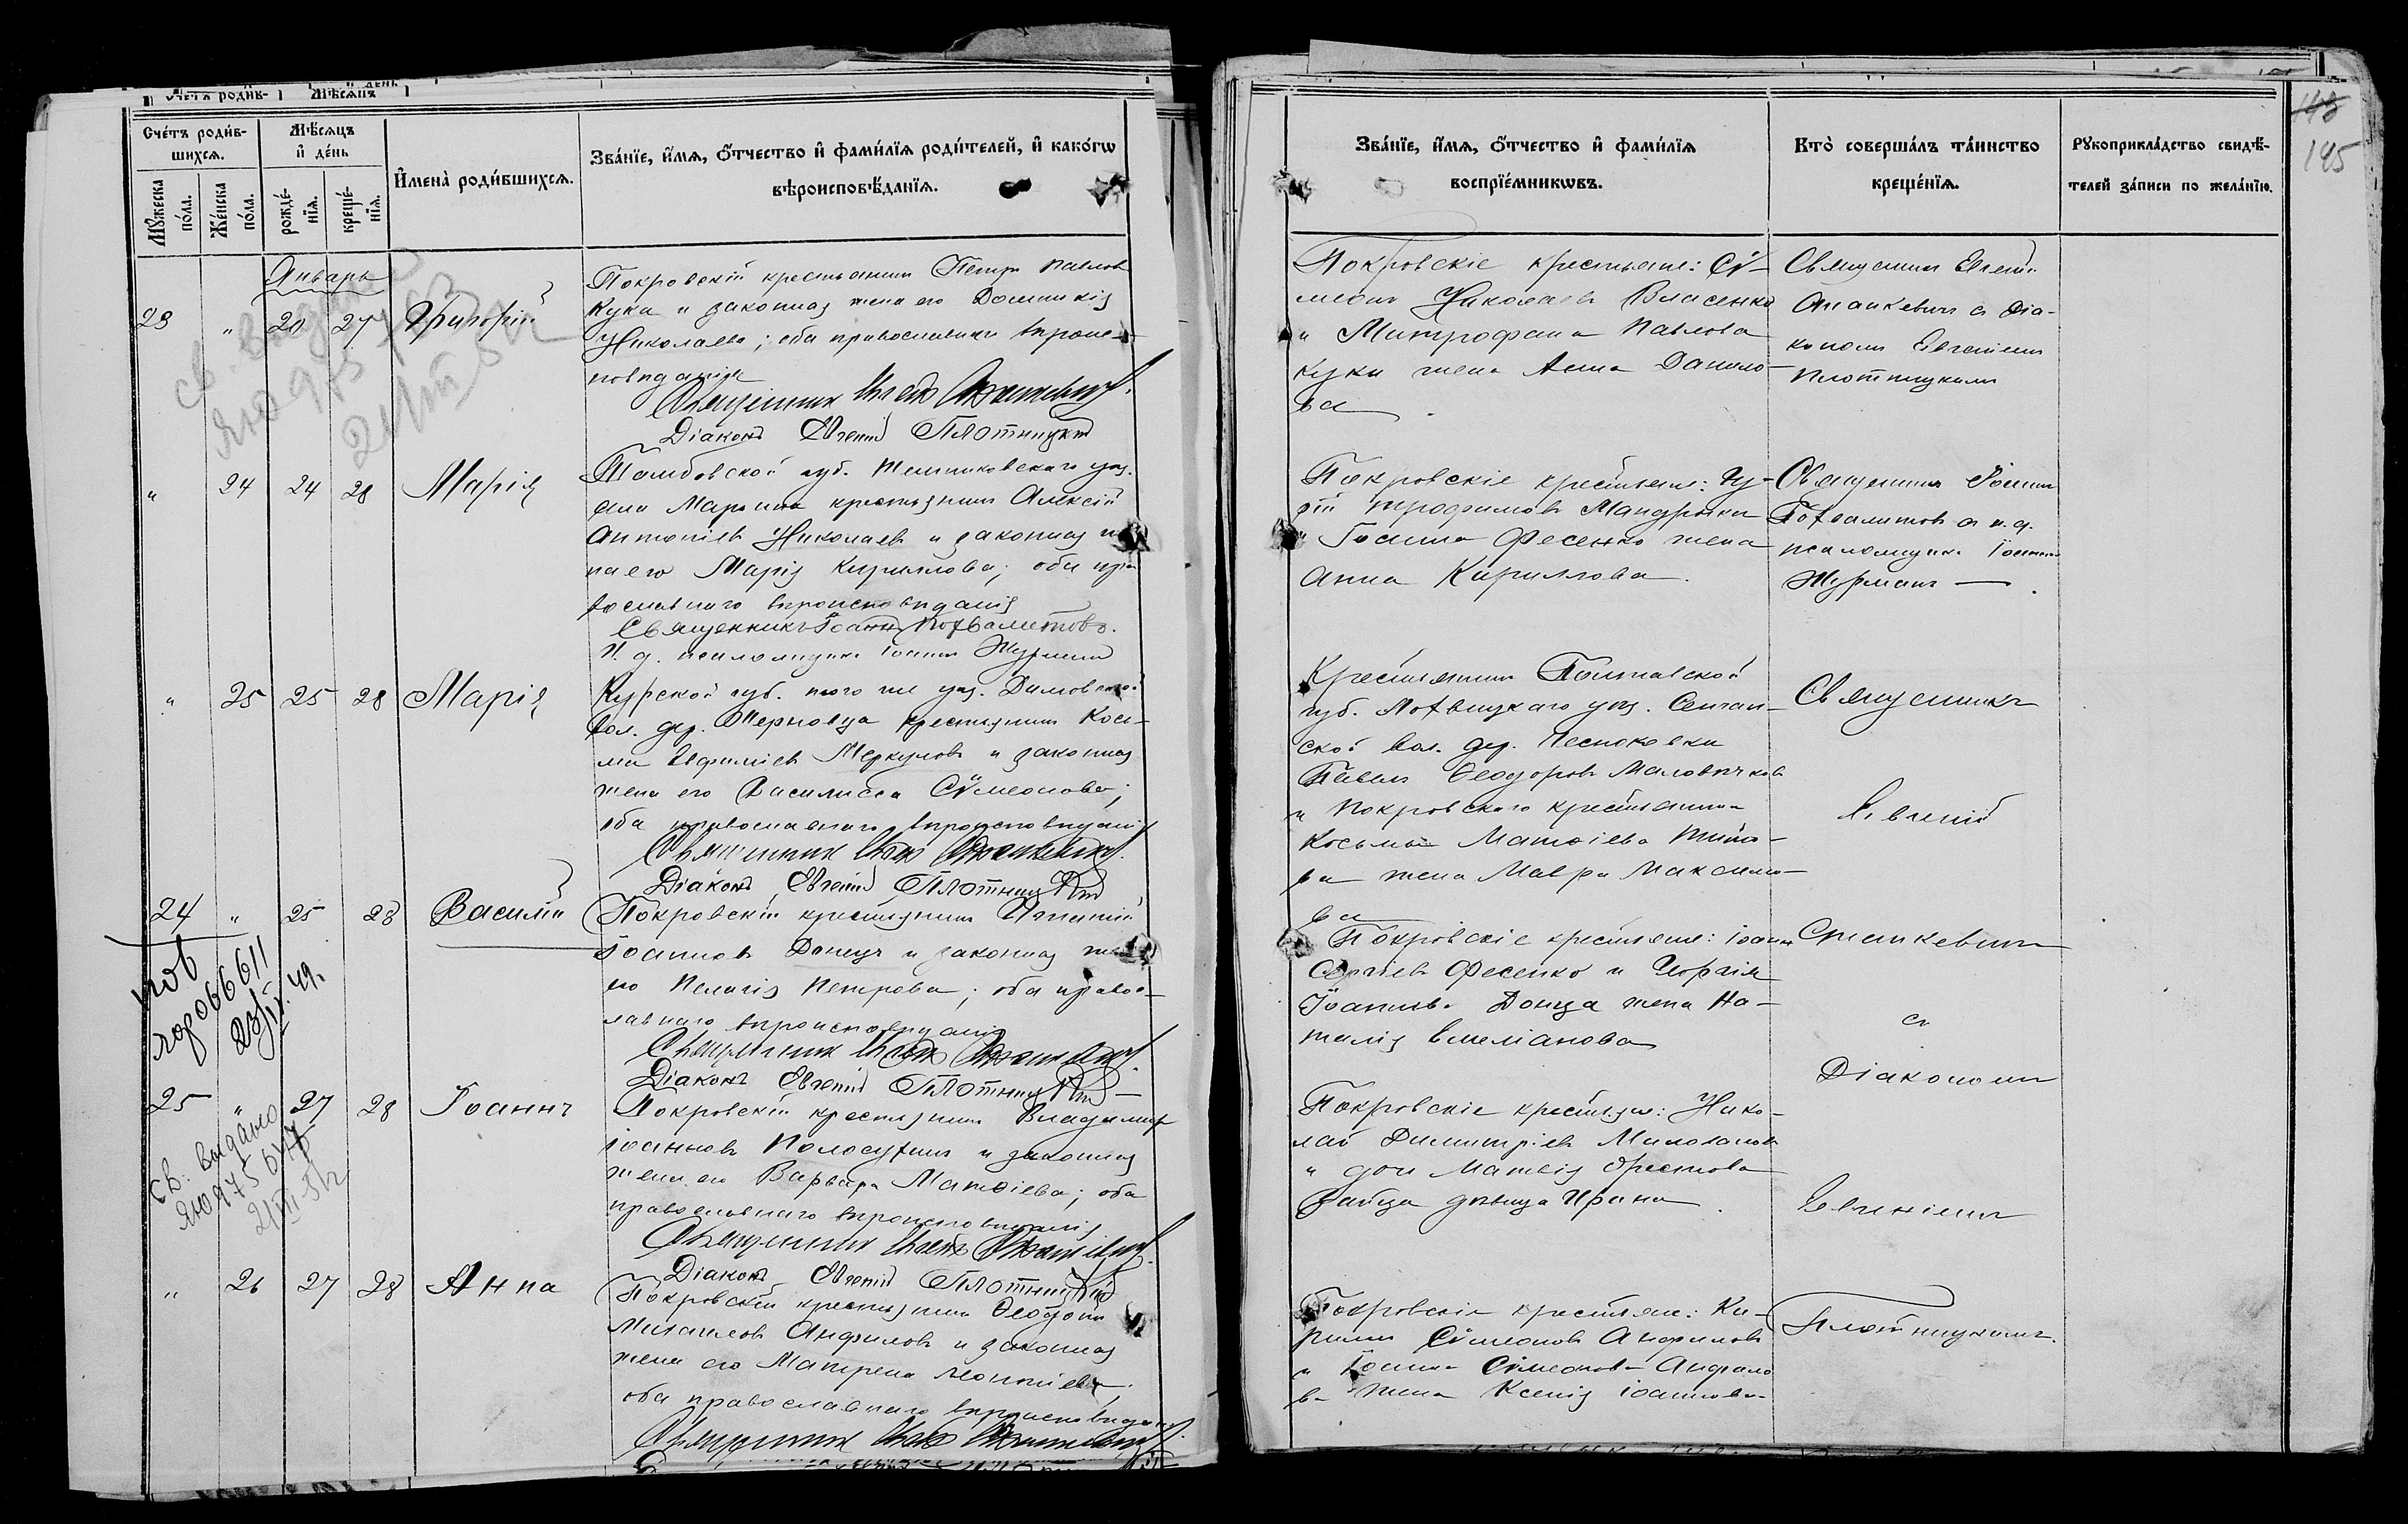 Счетъ родив-
шихся.
Мѣсяцъ
и день
Имена родившихся.
Званіе, имя, отчество и фамилія родителей, и какогѡ
вѣроисповѣданія.
Мужеска пола.
Женска пола.
рожде-
нія.
креще-
нія.
Январь
23 " 20 27 Григорій
Покровскій крестьянинъ Петръ Павловъ
Кука и законная жена его Домникія
Николаева; оба православнаго вѣроис-
повѣданія
Священникъ
Діаконъ Евгеній Плотницкій
" 24 24 28 Марія
Тамбовской губ. Темниковскаго уѣз.
крестьянинъ Алексій
Антоніевъ Николаевъ и законная
на его Марія Кириллова; оба пра
вославнаго вѣроисповѣданія
Священникъ Іоаннъ Похвалитовъ.
И. д. псаломщика Іоаннъ Журманъ
" 25 25 28 Марія
Курской губ. того же уѣз. Дьяковской
вол. дер. крестьянинъ Кось-
ма Евфиміевъ Меркуловъ и законная
жена его Василисса Сѵмеонова;
оба православнаго вѣроисповѣданія
Священникъ
Діаконъ Евгеній Плотницкій
24 " 25 28 Василій
Покровскій крестьянинъ Игнатій
Іоанновъ Донецъ и законная
его Пелагія Петрова; оба правос-
лавнаго вѣроисповѣданія
Священникъ
Діаконъ Евгеній Плотницкій
25 " 27 28 Іоаннъ
Покровскій крестьянинъ Владиміръ
Іоанновъ и законная
жена его Варвара Матѳіева; оба
православнаго вѣроисповѣданія
Священникъ
Діаконъ Евгеній Плотницкій
" 26 27 28 Анна
Покровскій крестьянинъ Ѳеодоръ
Михаиловъ Анфиловъ и законная
жена его Матрена Леонтіева;
оба православнаго вѣроисповѣданія
Священникъ
св. выдано
21/III 52
пов
яор066611
23/IV.49.
св. выдано
21/III-52
Званіе, имя, отчество и фамилія
воспріемникѡвъ.
Кто совершалъ таинство
крещенія.
Рукоприкладство свидѣ-
телей записи по желанію.
148
145
Покровскіе крестьяне: Сѵ-
меонъ Николаевъ Власенко
и Митрофана Павлова
Куки жена Анна Данило-
ва
Священникъ Евгеній
Станкевичъ съ діа-
кономъ Евгеніемъ
Плотницкимъ
Покровскіе крестьяне: Гу-
рій Трофимовъ Мандрыка
и Іоанна Фесенко жена
Анна Кириллова.
Священникъ Іоаннъ
Похвалитовъ съ и. д.
псаломщика Іоанномъ
Журманъ
Крестьянинъ Полтавской
губ. Лохвицкаго уѣз. Сенчан-
ской вол. дер. Песноковки
Павелъ Ѳеодоровъ Маловичковъ
и Покровскаго крестьянина
Косьмы Матѳіева Тито-
ва жена Мавра Максимо-
ва
Священникъ
Евгеній
Покровскіе крестьяне: Іоаннъ
Сергіевъ Фесенко и Георгія
Іоаннова Донца жена На-
талія Емеліанова
Станкевичъ
съ
Діакономъ
Покровскіе крестьяне: Нико-
лай Димитріевъ Миловановъ
и дочь Матвія Орестова
Зайца дѣвица Ирина.
Евгеніемъ
Покровскіе крестьяне: Ки-
риллъ Сѵмеоновъ Анфиловъ
и Іоанна Сѵмеонова Анфило
ва жена Ксенія Іоаннова
Плотницкимъ.